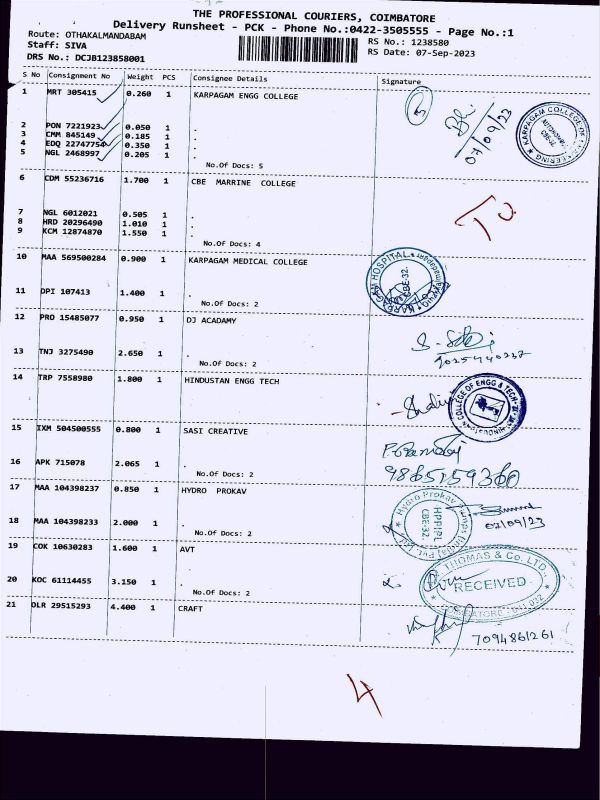 THE PROFESSIONAL COURIERS, COIMBATORE
Delivery Runsheet - PCK - Phone No.:0422-3505555 - Page No.:1
Route: OTHAKALMANDABAM RS No.: 1238580
Staff: SIVA RS Date: 07-Sep-2023
DRS No.: DCJB123858001
S No Consignment No Weight PCS Consignee Details Signature
1 MRT 305415 0.260 1 KARPAGAM ENGG COLLEGE
5
07/09/23
KARPAGAM COLLEGE OF ENGINEERING
AUTONOMOUS
CBE-32.
2 PON 7221923 0.050 1 .
3 CMM 845149 0.185 1 .
4 EDQ 22747754 0.350 1 .
5 NGL 2468997 0.205 1 .
No.Of Docs: 5
6 CDM 55236716 1.700 1 CBE MARRINE COLLEGE
7 NGL 6012021 0.505 1 .
8 HRD 20296490 1.010 1 .
9 KCM 12874870 1.550 1 .
No.Of Docs: 4
10 MAA 569500284 0.900 1 KARPAGAM MEDICAL COLLEGE
KARPAGAM HOSPITAL
CBE-32.
11 DPI 107413 1.400 1 .
No.Of Docs: 2
12 PRO 15485077 0.950 1 DJ ACADAMY
9025440237
13 TNJ 3275490 2.650 1 .
No.Of Docs: 2
14 TRP 7558980 1.800 1 HINDUSTAN ENGG TECH
COLLEGE OF ENGG & TECH
15 IXM 504500555 0.800 1 SASI CREATIVE
9865159360
16 APK 715078 2.065 1 .
No.Of Docs: 2
17 MAA 104398237 0.850 1 HYDRO PROKAV
Hydro Prokav Pumps (India) Pvt. Ltd.
HPPIPL
CBE-32.
07/09/23
18 MAA 104398233 2.000 1 .
No.Of Docs: 2
19 COK 10630283 1.600 1 AVT
THOMAS & Co. LTD.
RECEIVED
COIMBATORE
20 KOC 61114455 3.150 1 .
No.Of Docs: 2
21 DLR 29515293 4.400 1 CRAFT
7094861261
4